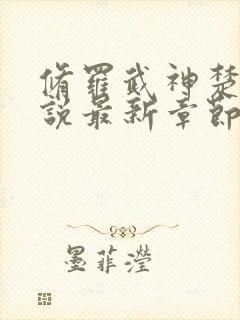 脩羅武神楚
說最新章節
墨菲瀅